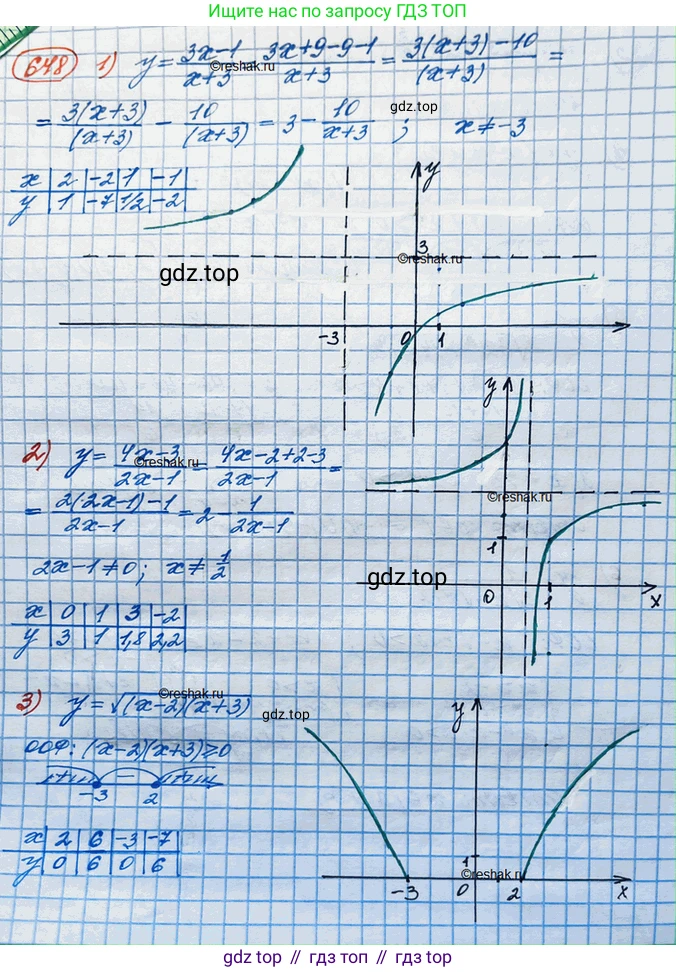 Ищите нас по запросу ГДЗ ТОП
648 1) y = (3x-1)/(x+3) = (3x+9-9-1)/(x+3) = (3(x+3)-10)/(x+3) =
©reshak.ru
gdz.top
= (3(x+3))/(x+3) - 10/(x+3) = 3 - 10/(x+3) ; x ≠ -3
x | 2 | -2 | 1 | -1
y | 1 | -7 | 1/2 | -2
y
3
©reshak.ru
gdz.top
-3 0 1
2) y = (4x-3)/(2x-1) = (4x-2+2-3)/(2x-1) =
©reshak.ru
= (2(2x-1)-1)/(2x-1) = 2 - 1/(2x-1)
2x-1≠0; x ≠ 1/2
x | 0 | 1 | 3 | -2
y | 3 | 1 | 1,8 | 2,2
y
©reshak.ru
1
gdz.top
0 1 x
3) y = √(x-2)(x+3)
©reshak.ru
gdz.top
ООФ: (x-2)(x+3)≥0
+ - +
-3 2
x | 2 | 6 | -3 | -7
y | 0 | 6 | 0 | 6
y
1
©reshak.ru
-3 0 2 x
gdz top // гдз топ // gdz.top